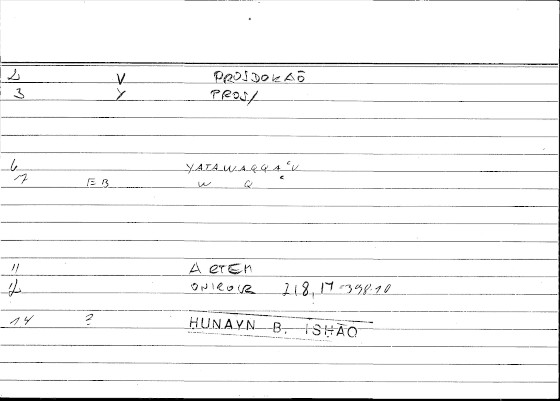 2 V PROSDOKAŌ
3 Y PROS/
6 YATAWAQQAʿU
7 EB W Q ʿ
11 ARTEM
12 ONIROCR 218,17-398.10
14 ? HUNAYN B. ISHĀQ